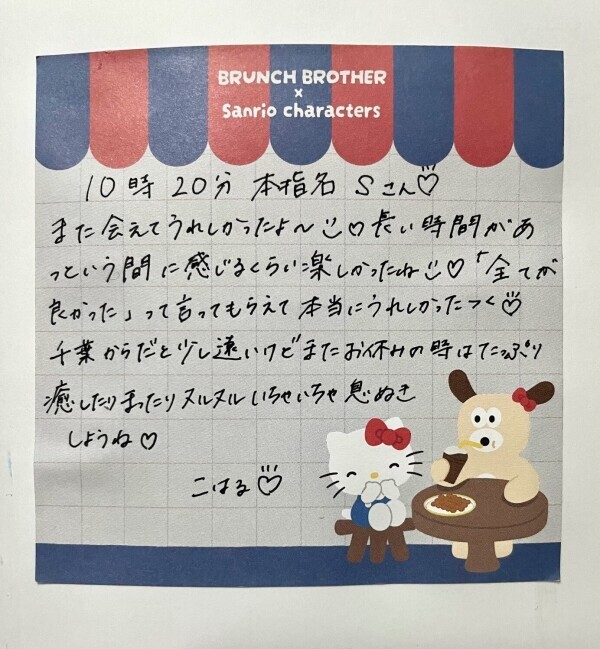 BRUNCH BROTHER
×
Sanrio characters
10時20分 本指名 Sさん♡
また会えてうれしかったよ〜♡長い時間があ
っという間に感じるくらい楽しかったね♡「全てが
良かった」って言ってもらえて本当にうれしかったっ♡
千葉からだと少し遠いけどまたお休みの時はたっぷり
癒したりまったりヌルヌルいちゃいちゃ息ぬき
しようね♡
こはる♡